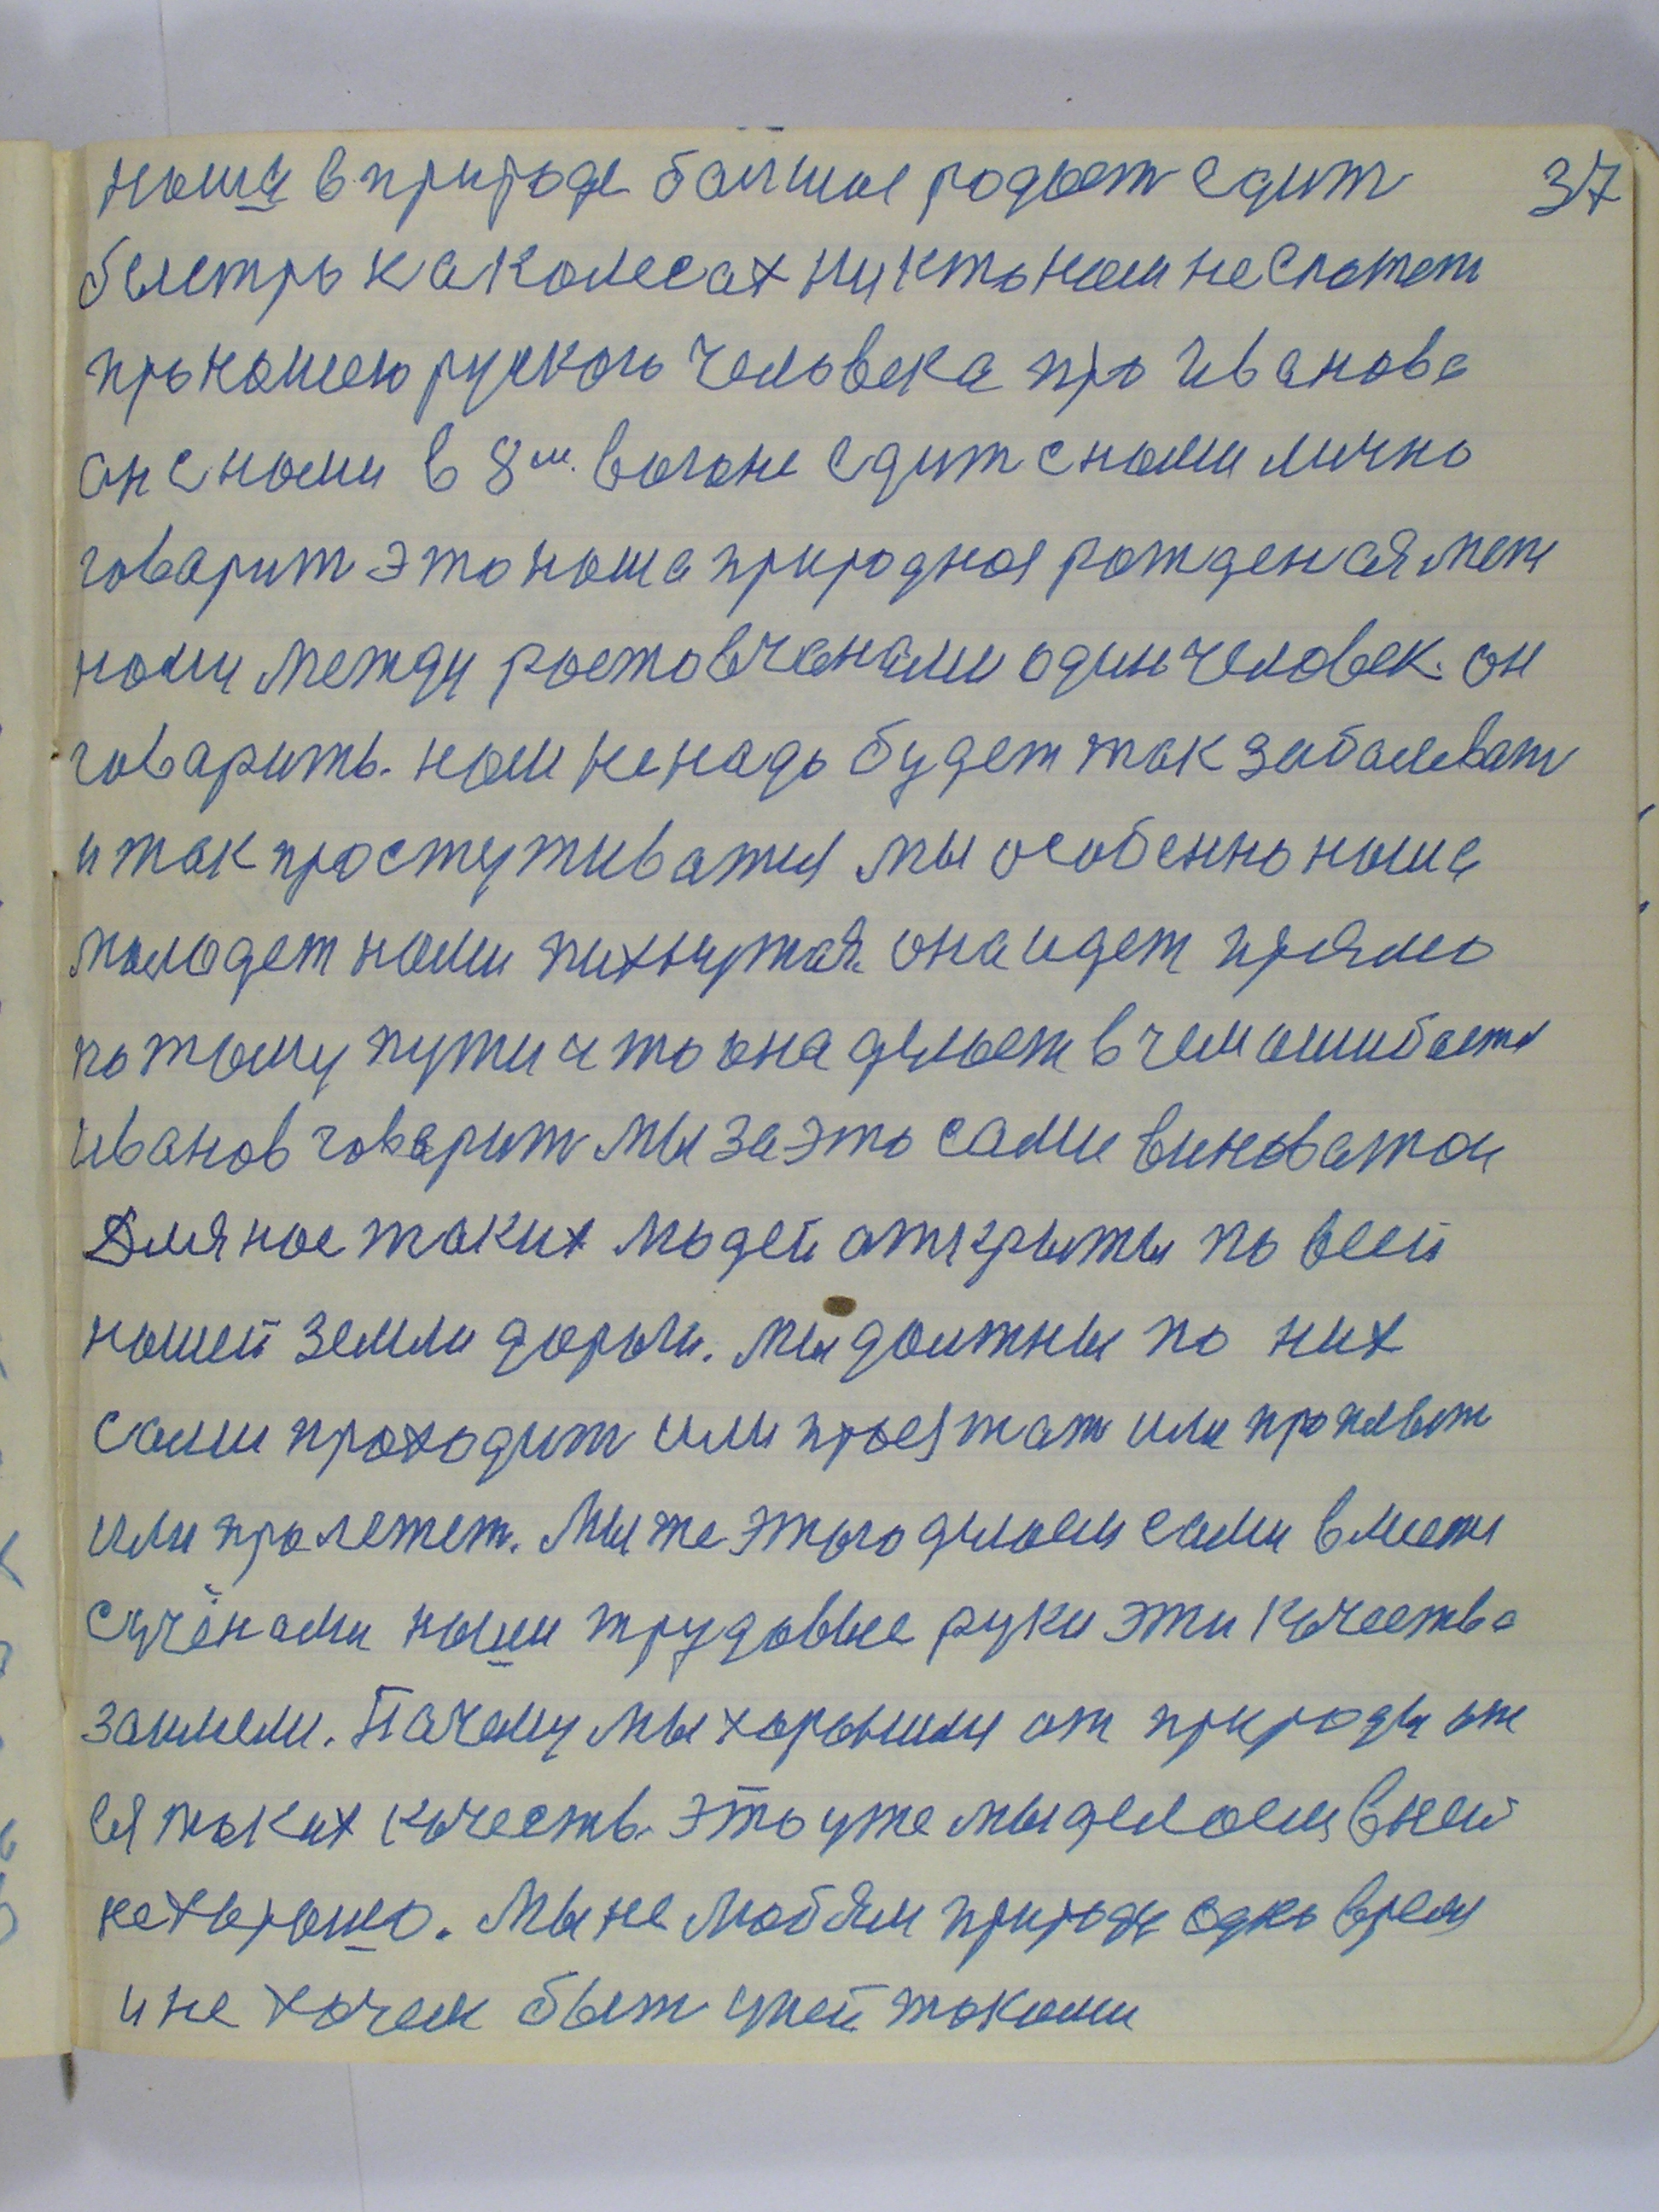 наша в природе балшые родост едит 37
быстро на колесах никто нам не скажет
про нашею руского человека про Иванова
он с нами в 8м. вагоне едит с нами лично
говарит это наша природное рожденая меж
нами между ростовчанами один человек. он
говарить. нам ненадо будет так заболеват
и так простуживатся мы особенно наша
молодеж нами пихнутая она идет прямо
по тому пути что она делает в чем ошибается
иванов говарит мы за это сами виноватои
Для нас таких людей аткрыты по всей
нашей земли дороги. мы должны по них
сами проходит или проежжат или проплыт
или пролетет. Мы же этого делаем сами вместе
с учёнами наши трудовые руки эти качества
заимели. Почему мы хорошии от природы от
ея таких качеств. это уже мы делаем в ней
нехорошо. Мы не любим природе одно время
и не хочем быт у ней такими